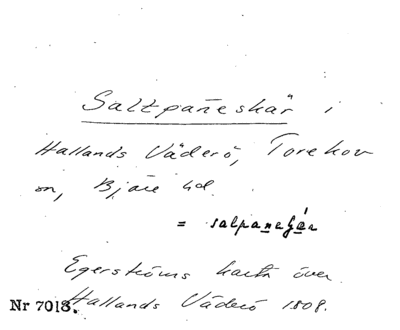 Saltpañeskär i
Hallands Väderö, Torekov
sn, Bjäre hd.
= salpane
Egerströms karta över
Hallands Väderö 1808.
Nr 7018.